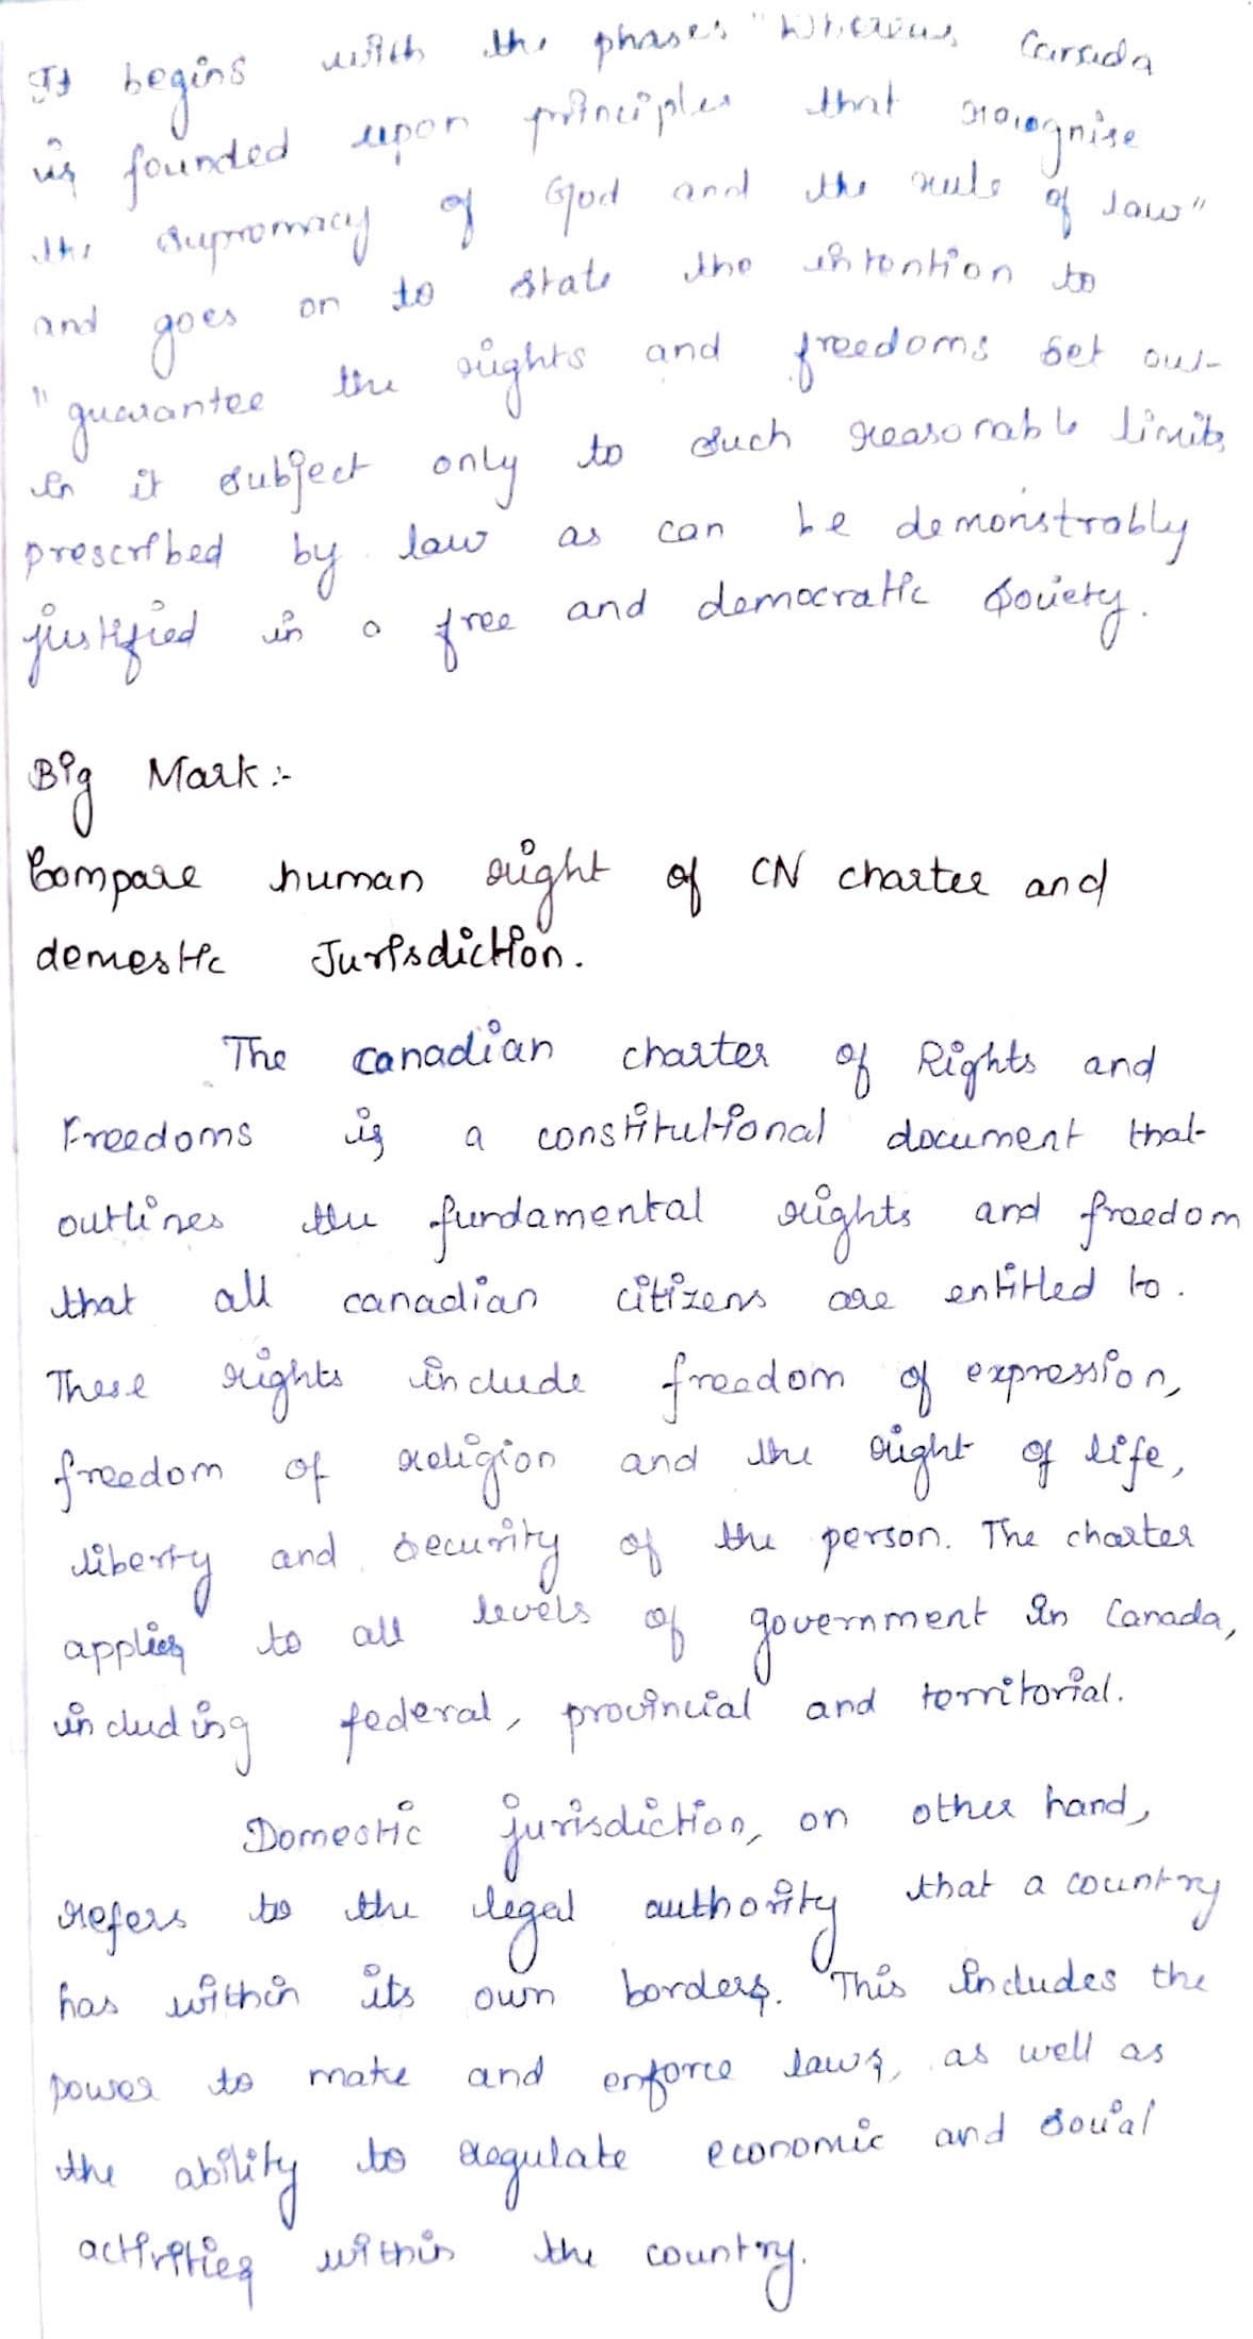 It begins with the phases "Whereas Canada
is founded upon principles that recognise
the supremacy of God and the rule of law"
and goes on to state the intention to
"guarantee the rights and freedoms set out
in it subject only to such reasonable limits
prescribed by law as can be demonstrably
justified in a free and democratic society.
Big Mark:-
Compare human right of CN charter and
demestic Jurisdiction.
The canadian charter of Rights and
Freedoms is a constitutional document that
outlines the fundamental rights and freedom
that all canadian citizens are entitled to.
These rights include freedom of expression,
freedom of religion and the right of life,
liberty and security of the person. The charter
applies to all levels of government in Canada,
including federal, provincial and territorial.
Domestic jurisdiction, on other hand,
refers to the legal authority that a country
has within its own borders. This includes the
power to make and enforce laws, as well as
the ability to regulate economic and social
activities within the country.